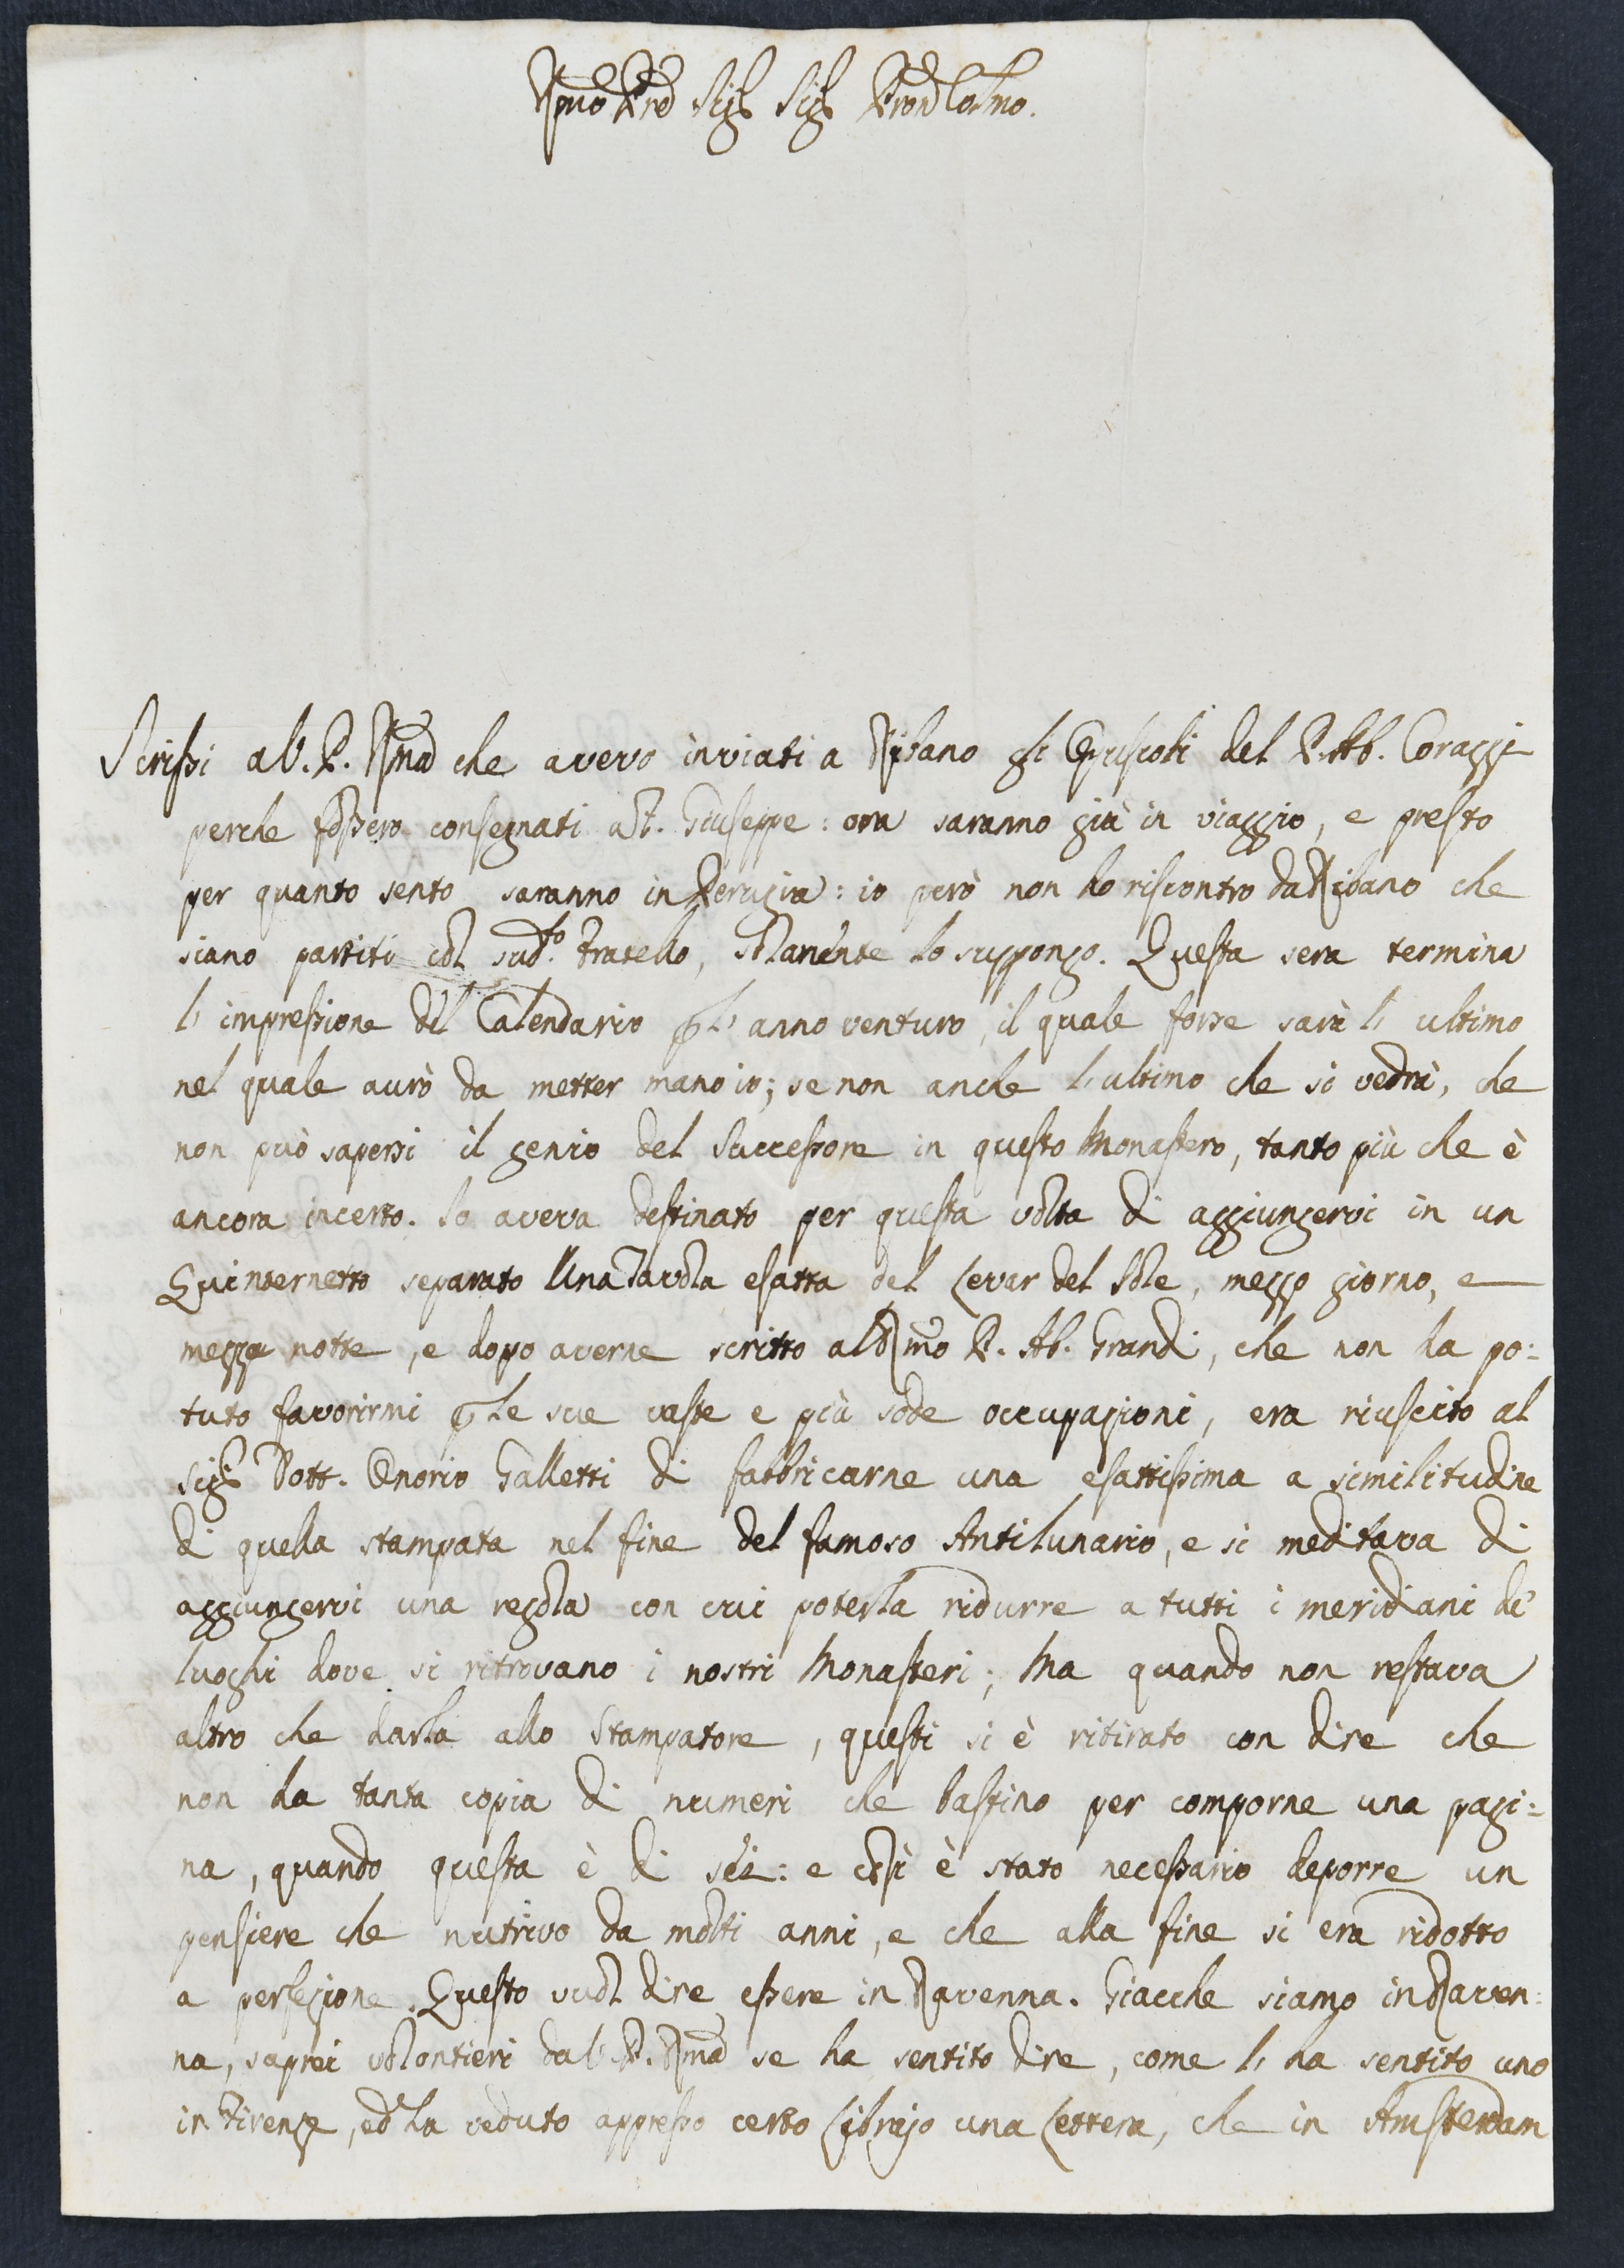 Rmo Pre Sig.r Sig.r Pron Colmo.
Scrissi a V. P. Rma che avevo inviati a Ribano gli Opuscoli del P. Ab. Corazzi
perche fossero consegnati a F. Giuseppe: ora saranno già in viaggio, e presto
per quanto sento saranno in Perugia: io però non ho riscontro da Ribano che
siano partiti col sud.to Fratello, solamente lo suppongo. Questa sera termina
l'impressione del Calendario p l'anno venturo, il quale forse sarà l'ultimo
nel quale avrò da metter mano io; se non anche l'ultimo che si vedrà, che
non può sapersi il genio del Successore in questo Monastero, tanto più che è
ancora incerto. Io aveva destinato per questa volta di aggiungervi in un
Quinternetto separato Una Tavola esatta del levar del Sole, mezzo giorno, e
mezza notte, e dopo averne scritto al Rmo P. Ab. Grandi, che non ha po:
tuto favorirmi p le sue vaste e più sode occupazioni, era riuscito al
Sig.r Dott. Onorio Galletti di fabbricarne una esattissima a similitudine
di quella stampata nel fine del famoso Antilunario, e si meditava di
aggiungervi una regola con cui poterla ridurre a tutti i meridiani de'
luoghi dove si ritrovano i nostri Monasteri; Ma quando non restava
altro che darla allo Stampatore, questi si è ritirato con dire che
non ha tanta copia di numeri che bastino per comporne una pagi:
na, quando questa è di sei: e così è stato necessario deporre un
pensiere che nutrivo da molti anni, e che alla fine si era ridotto
a perfezione. Questo vuol dire essere in Ravenna. Giacche siamo in Raven:
na, saprei volontieri da V. P. Rma se ha sentito dire, come l'ha sentito uno
in Firenze, ed ha veduto appresso certo Librajo una Lettera, che in Amsterdam